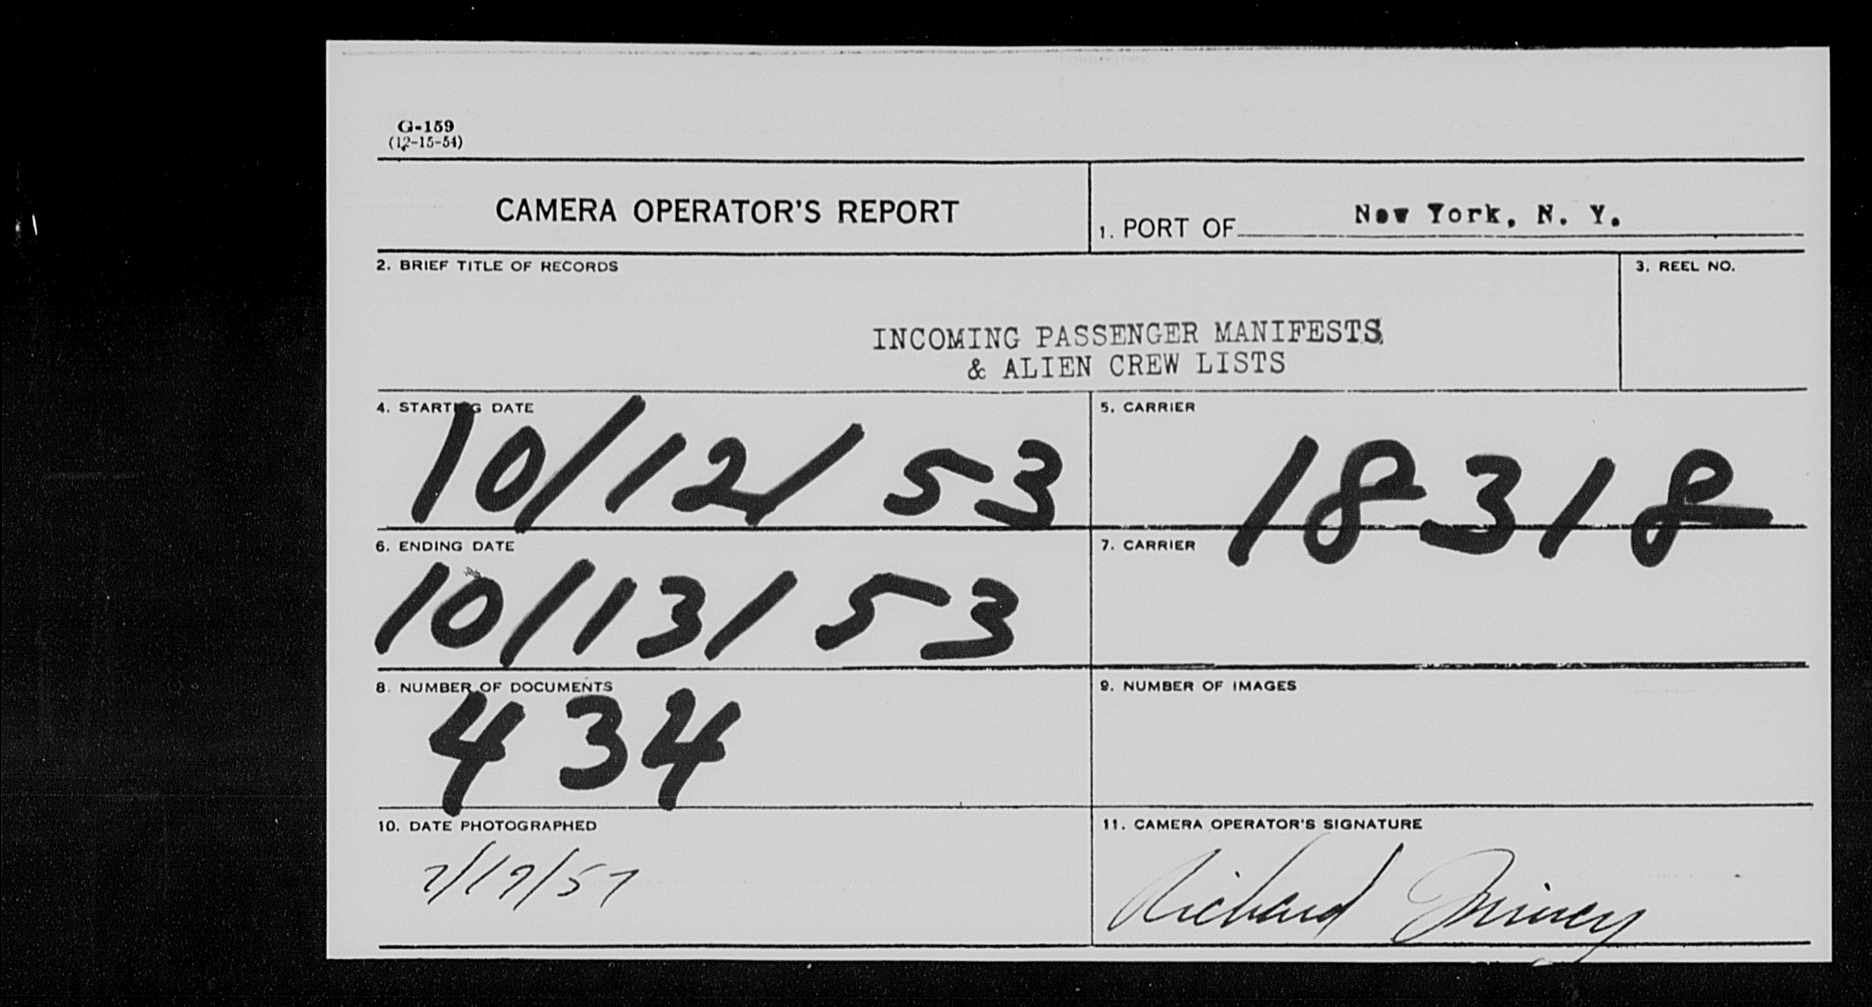 G-159
(12-15-54)
CAMERA OPERATOR'S REPORT
1. PORT OF New York, N. Y.
2. BRIEF TITLE OF RECORDS
3. REEL NO.
INCOMING PASSENGER MANIFESTS
& ALIEN CREW LISTS
4. STARTING DATE
10/12/53
5. CARRIER
18318
6. ENDING DATE
10/13/53
7. CARRIER
8. NUMBER OF DOCUMENTS
434
9. NUMBER OF IMAGES
10. DATE PHOTOGRAPHED
11. CAMERA OPERATOR'S SIGNATURE
Richard